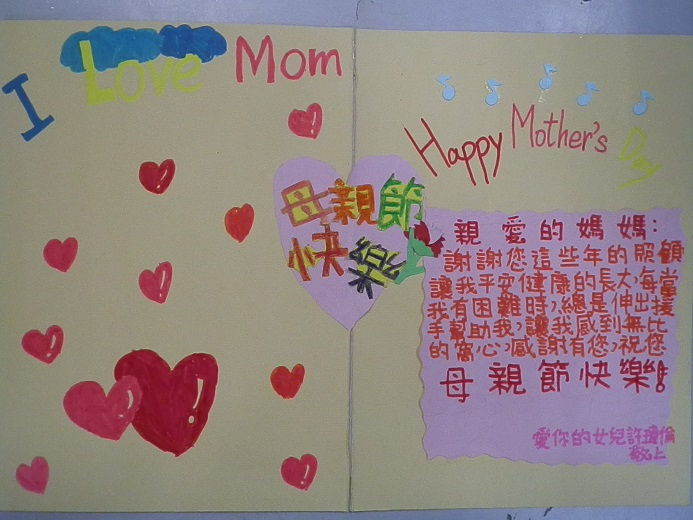 I Love Mom
Happy Mother's Day
母親節
快樂
親愛的媽媽:
謝謝您這些年的照顧
讓我平安健康的長大,每當
我有困難時,總是伸出援
手幫助我,讓我感到無比
的窩心,感謝有您,祝您
母親節快樂!
愛你的女兒許瓊倫
敬上